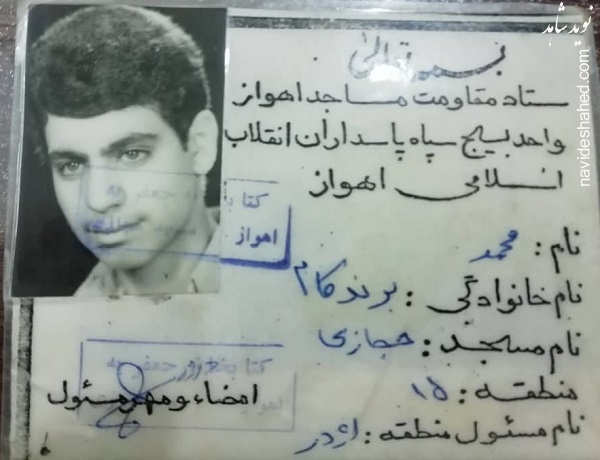 بسمه تعالی
ستاد مقاومت مساجد اهواز
واحد بسیج سپاه پاسداران انقلاب
اسلامی اهواز
نام : محمد
نام خانوادگی : برندکام
نام مسجد : حجازی
منطقه : ۱۵
نام مسئول منطقه : اژدر
امضاء و مهر مسئول
اهواز
نوید شاهد
navideshahed.com